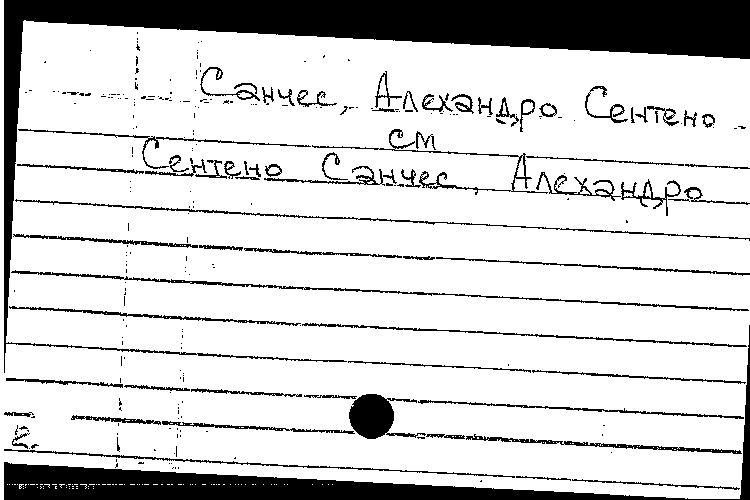 Санчес, Алехандро Сентено -
см
Сентено Санчес, Алехандро
2.